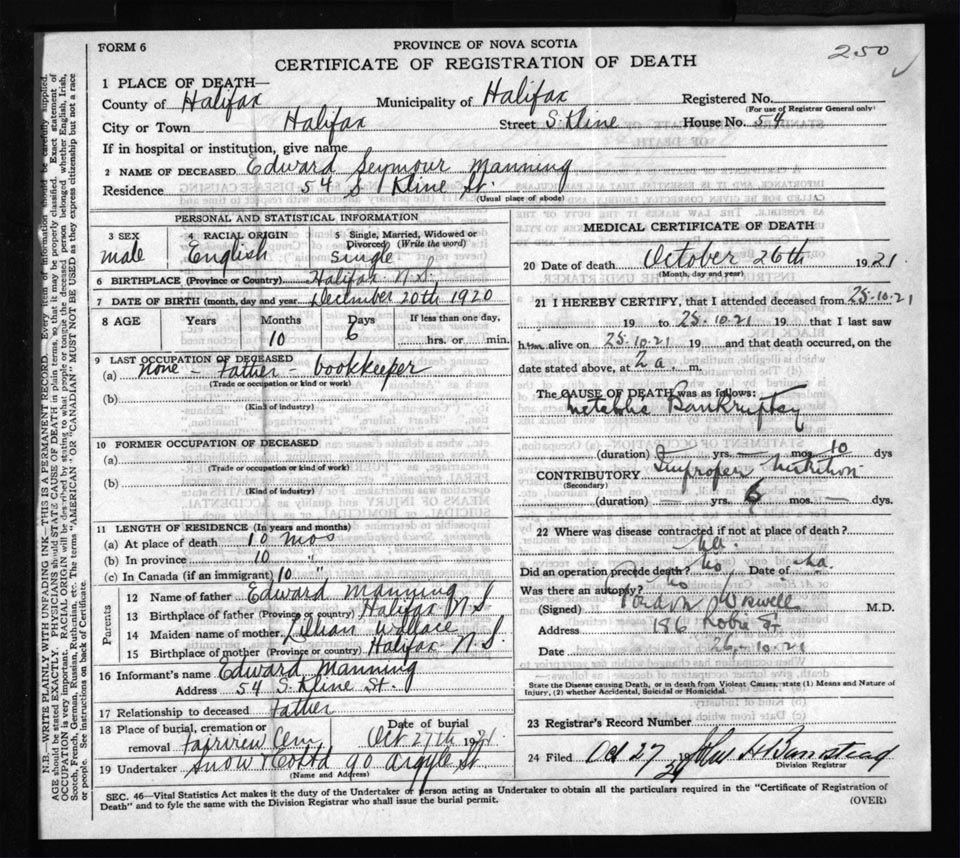 FORM 6
PROVINCE OF NOVA SCOTIA
250 ✓
CERTIFICATE OF REGISTRATION OF DEATH
1 PLACE OF DEATH—
County of Halifax Municipality of Halifax Registered No.
(For use of Registrar General only)
City or Town Halifax Street S. Kline House No. 54
If in hospital or institution, give name
2 NAME OF DECEASED Edward Seymour Manning
Residence 54 S Kline St.
(Usual place of abode)
PERSONAL AND STATISTICAL INFORMATION
3 SEX 4 RACIAL ORIGIN 5 Single, Married, Widowed or Divorced (Write the word)
male English Single
6 BIRTHPLACE (Province or Country) Halifax N.S.
7 DATE OF BIRTH (month, day and year) December 20th 1920
8 AGE Years Months Days If less than one day,
10 6 hrs. or min.
9 LAST OCCUPATION OF DECEASED
(a) None - Father - bookkeeper
(Trade or occupation or kind of work)
(b)
(Kind of industry)
10 FORMER OCCUPATION OF DECEASED
(a)
(Trade or occupation or kind of work)
(b)
(Kind of industry)
11 LENGTH OF RESIDENCE (In years and months)
(a) At place of death 10 mos
(b) In province 10 "
(c) In Canada (if an immigrant) 10 "
Parents
12 Name of father Edward Manning
13 Birthplace of father (Province or country) Halifax N.S.
14 Maiden name of mother Lillian Wallace
15 Birthplace of mother (Province or country) Halifax N.S.
16 Informant's name Edward Manning
Address 54 S. Kline St.
17 Relationship to deceased Father
18 Place of burial, cremation or removal Fairview Cem Date of burial Oct 27th 1921
19 Undertaker Snow & Co Ltd 90 Argyle St.
(Name and Address)
MEDICAL CERTIFICATE OF DEATH
20 Date of death October 26th 1921
(Month, day and year)
21 I HEREBY CERTIFY, that I attended deceased from 25-10-21
19 to 25-10-21 19 that I last saw
him alive on 25-10-21 19 and that death occurred, on the
date stated above, at 2 a. m.
The CAUSE OF DEATH was as follows:
Bankruptsy
(duration) yrs. — mos. 10 dys
CONTRIBUTORY Improper Nutrition
(Secondary)
(duration) — yrs. 6 mos. — dys.
22 Where was disease contracted if not at place of death?
Na.
Did an operation precede death? No Date of Na.
Was there an autopsy? No
(Signed) M.D.
Address 186 Robie St
Date 26-10-21
State the Disease causing Death, or in death from Violent Causes, state (1) Means and Nature of
Injury, (2) whether Accidental, Suicidal or Homicidal.
23 Registrar's Record Number
24 Filed Oct 27 21 John H Barnstead
Division Registrar
SEC. 46—Vital Statistics Act makes it the duty of the Undertaker or person acting as Undertaker to obtain all the particulars required in the "Certificate of Registration of
Death" and to fyle the same with the Division Registrar who shall issue the burial permit.
(OVER)
N.B.—WRITE PLAINLY WITH UNFADING INK—THIS IS A PERMANENT RECORD. Every item of information should be carefully supplied.
AGE should be stated EXACTLY. PHYSICIANS should STATE CAUSE OF DEATH in plain terms, so that it may be properly classified. Exact statement of
OCCUPATION is very important. RACIAL ORIGIN will be described by stating to what people or tongue the deceased person belonged whether English, Irish,
Scotch, French, German, Russian, Ruthenian, etc. The terms "AMERICAN" OR "CANADIAN" MUST NOT BE USED as they express citizenship but not a race
or people. See instructions on back of Certificate.